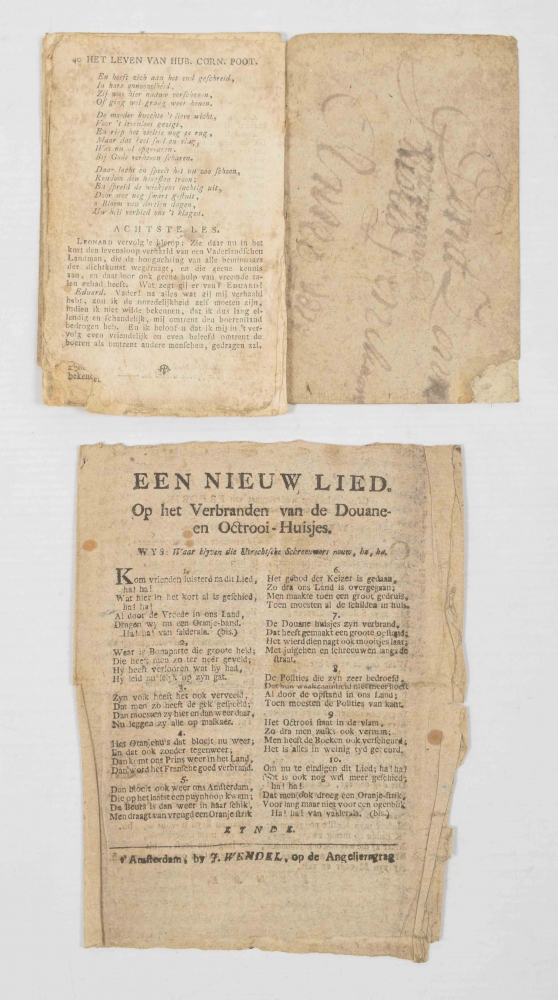 40 HET LEVEN VAN HUB. CORN. POOT.
En heeft zich aan het end geschreid,
In hare
Zij was hier nieuw verschenen,
Of ging wel graag weer henen.
De moeder kuschte 't lieve wicht,
Voor 't levenloos gezigt,
En riep het zieltje nog te rug,
Maar dat
Was nu al opgevaren.
Bij Gods verheven scharen.
Daar lacht en speelt het nu zoo schoon,
Rondom den hoogsten troon;
En spreid de wiekjens luchtig uit,
Door wee nog smart gestuit,
ô Bloem van dertien dagen,
Uw heil verbied ons 't klagen.
ACHTSTE LES.
LEONARD vervolg'e hierop: Zie daar nu in het
kort den levensloop verhaald van een Vaderlandschen
Landman, die de hoogachting van alle beminnaars
der dichtkunst wegdraagt, en die geene kennis
aan, en daardoor ook geene hulp van vreemde ta-
len gehad heeft. Wat zegt gij er van? EDUARD!
Eduard. Vader! na alles wat gij mij verhaald
hebt, zou ik de onredelijkheid zelf moeten zijn,
indien ik niet wilde bekennen, dat ik dus lang el-
lendig en schandelijk, mij omtrent den boerenstand
bedrogen heb. En ik beloof u dat ik mij in 't ver-
volg even vriendelijk en even beleefd omtrent de
boeren als omtrent andere menschen, gedragen zal.
bekende,
EEN NIEUW LIED.
Op het Verbranden van de Douane-
en Octrooi-Huisjes.
WYS: Waar blyven die Utrechtsche Schreeuwers nouw, ha, ha.
1.
Kom vrienden luisterd na dit Lied,
ha! ha!
Wat hier in het kort al is geschied,
ha! ha!
Al door de Vreede in ons Land,
Dragen wy nu een Oranje-band.
Ha! ha! van falderala. (bis.)
2.
Waar is Bonaparte die groote held;
Die heeft men zo ter neêr geveld;
Hy heeft verlooren wat hy had,
Hy leid nu op zyn gat.
3.
Zyn volk heeft het ook verveeld,
Dat men zo heeft de gek gespeeld;
Dan moesten zy hier en dan weer daar,
Nu leggen zy alle op malkaer.
4.
Het Oranjehuis dat bloeit nu weer;
En dat ook zonder tegenweer;
Dan komt ons Prins weer in het Land,
Dan word het Fransche goed verbrand.
5.
Dan bloeit ook weer ons Amsterdam,
Die op het laatst een puynhoop kwam;
De Beurs is dan weer in haar schik,
Men draagt van vreugd een Oranje strik
6.
Het gebod der Keizer is gedaan,
Zo dra ons Land is overgegaan;
Men maakte toen een groot gedruis,
Toen moesten al de schilden in huis.
7.
De Douane huisjes zyn verbrand,
Dat heeft gemaakt een groote opstand;
Het wierd dien nagt ook mooitjes laat;
Met juigchen en schreeuwen langs de
straat.
8.
De Polities die zyn zeer bedroefd,
Dat hun waakzaamheid niet meer hoeft
Al door de opstand in ons Land;
Toen moesten de Polities van kant.
9
Het Octrooi staat in de vlam,
Zo dra men zulks ook vernam;
Men heeft de Boeken ook verscheurd;
Het is alles in weinig tyd gebeurd.
10.
Om nu te eindigen dit Lied; ha! ha!
Wat is ook nog wel meer geschied;
ha! ha!
Dat men ook droeg een Oranje-strik,
Voor lang maar niet voor een ogenblik
Ha! ha! van valderala. (bis.)
EYNDE.
t'Amsterdam, by J. WENDEL, op de Angeliersgragt